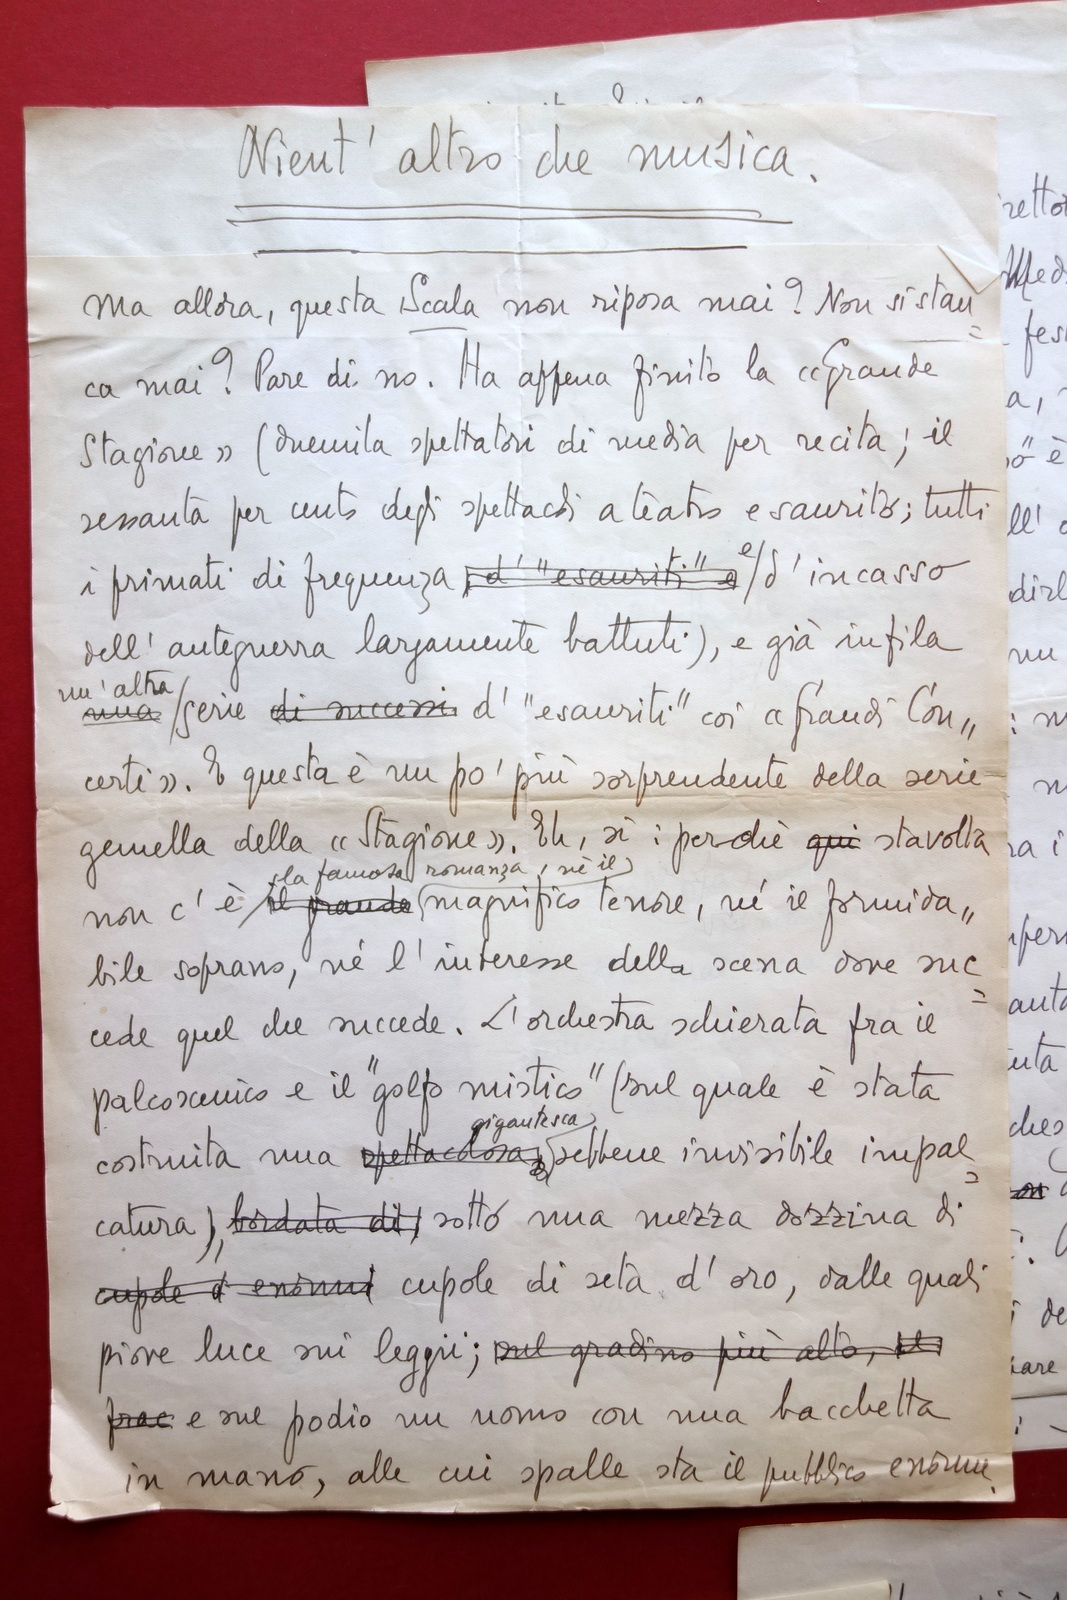 Nient' altro che musica.
Ma allora, questa Scala non riposa mai? Non si stan=
ca mai? Pare di no. Ha appena finito la «Grande
Stagione» (duemila spettatori di media per recita; il
sessanta per cento degli spettacoli a teatro esaurito; tutti
i primati di frequenza , d' "esauriti" e e/d' incasso
dell' anteguerra largamente battuti), e già infila
un' altra
una /serie di successi d' "esauriti" coi «Grandi Con„
certi». E questa è un po' più sorprendente della serie
gemella della «Stagione». Eh, sì: perchè qui stavolta
la famosa romanza, nè il
non c' è il grande magnifico tenore, né il formida„
bile soprano, né l' interesse della scena dove suc=
cede quel che succede. L'orchestra schierata fra il
palcoscenico e il "golfo mistico" (sul quale è stata
gigantesca
costruita una spettacolosa, sebbene invisibile impal=
catura), bordata di, sotto una mezza dozzina di
cupole d' enormi cupole di seta d' oro, dalle quali
piove luce sui leggii; sul gradino più alto, il
frac e sul podio un uomo con una bacchetta
in mano, alle cui spalle sta il pubblico enorme.